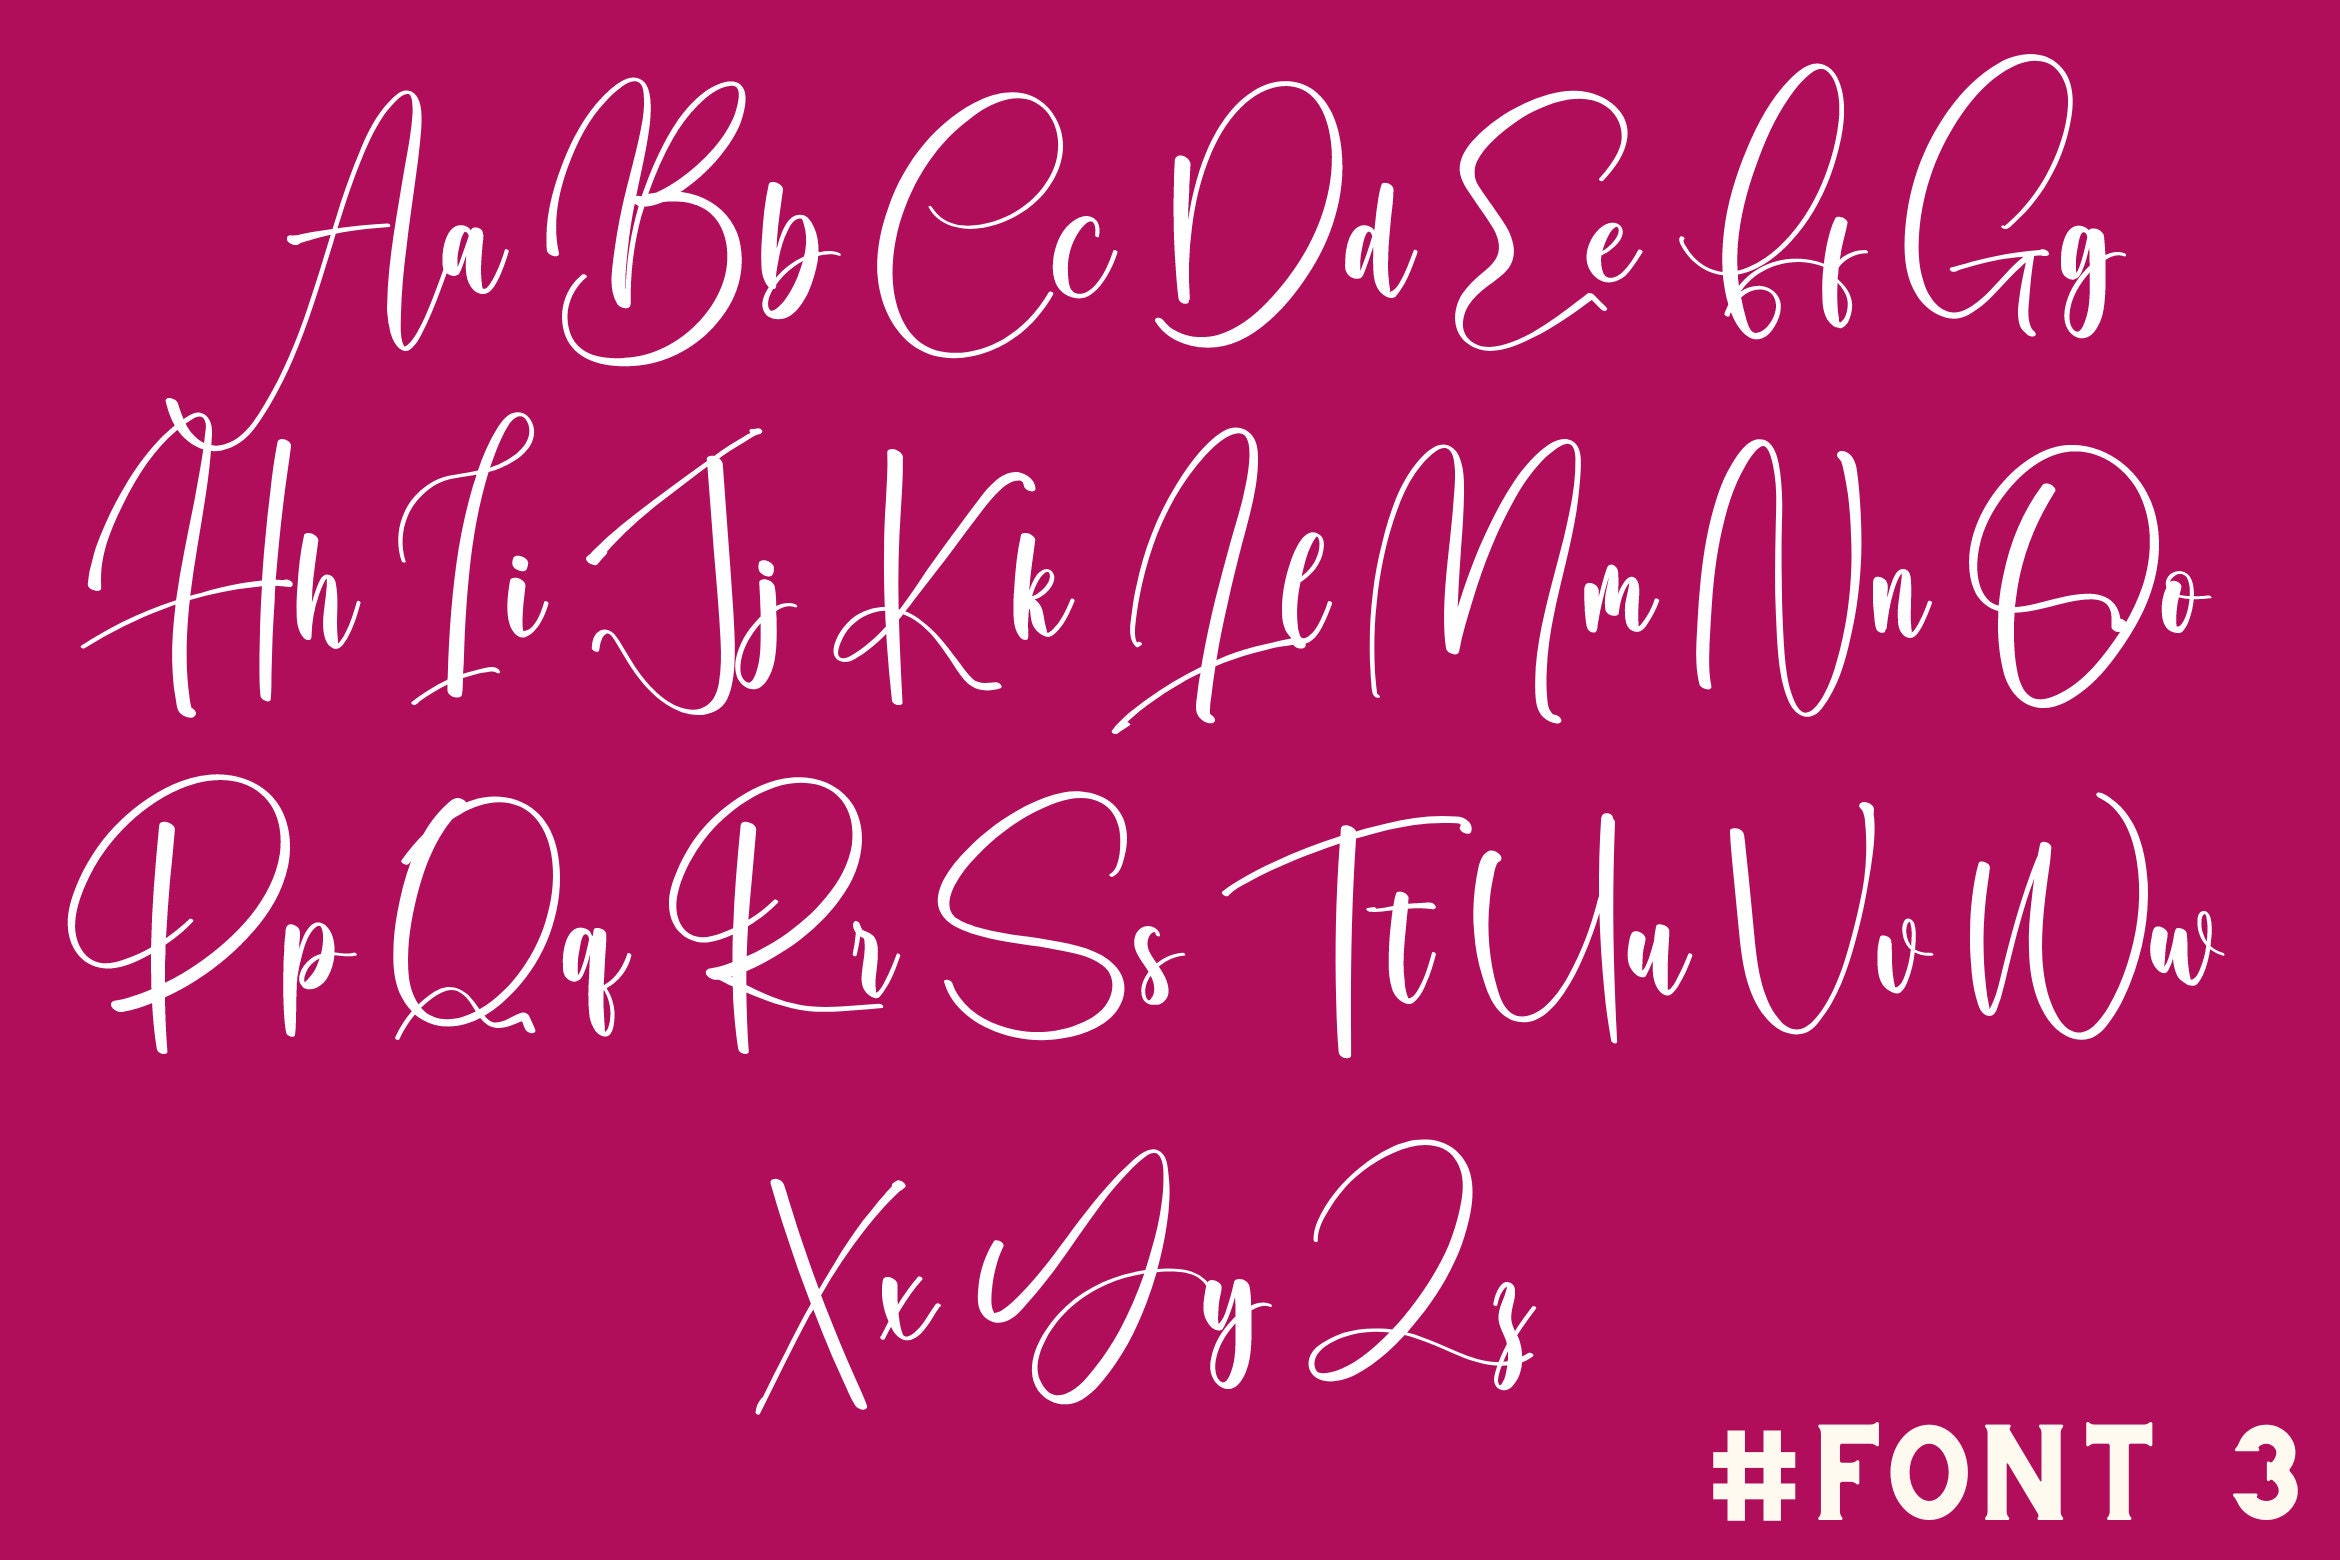 Aa Bb Cc Dd Ee Ff Gg
Hh Ii Jj Kk Ll Mm Nn Oo
Pp Qq Rr Ss Tt Uu Vv Ww
Xx Yy Zz
#FONT 3